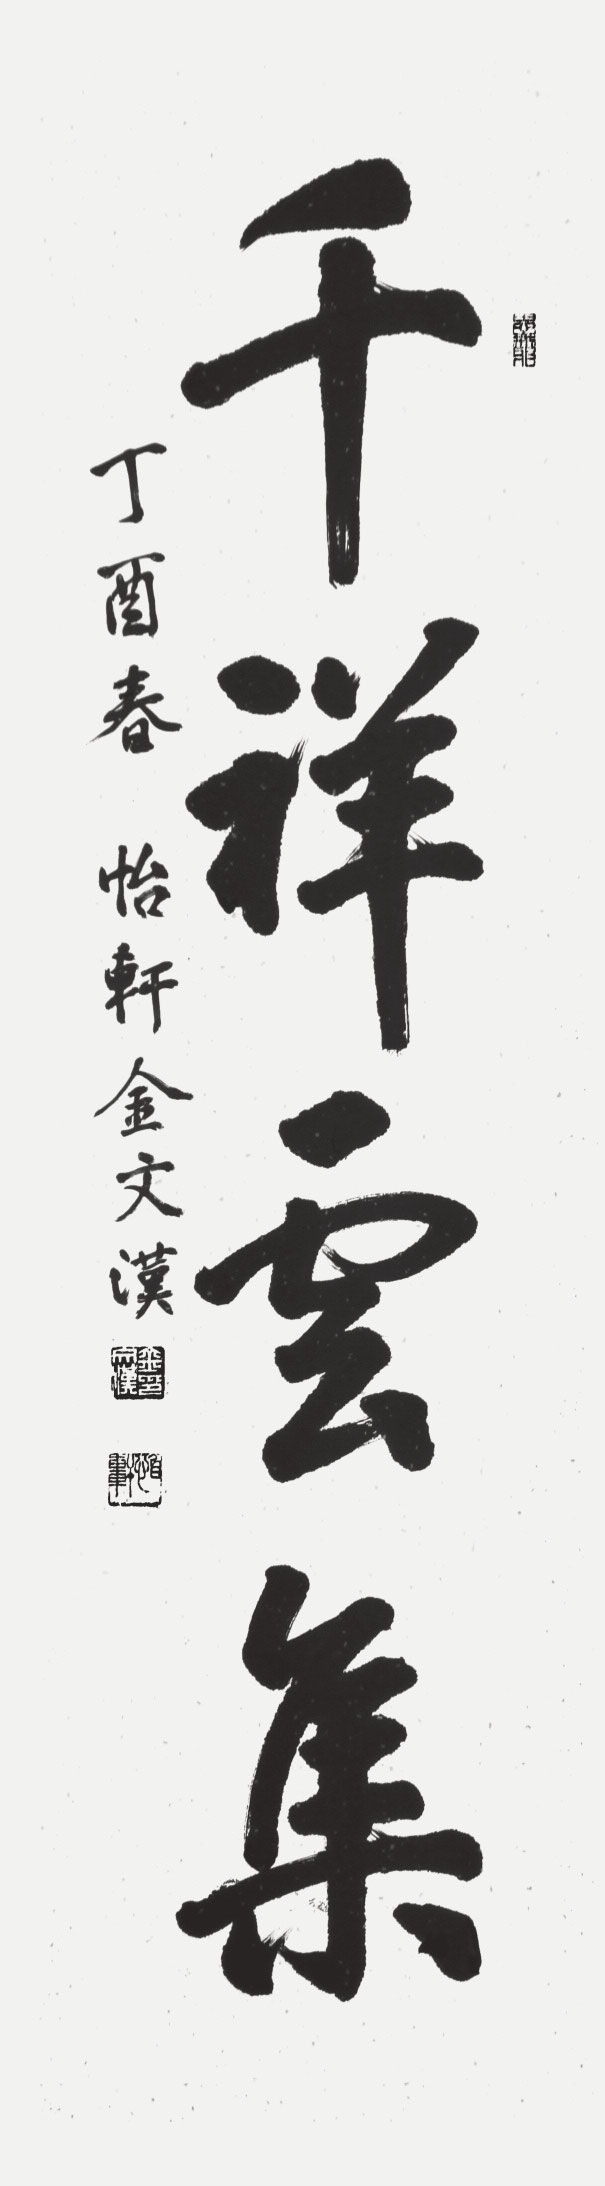 千祥雲集
丁酉春 怡軒金文漢